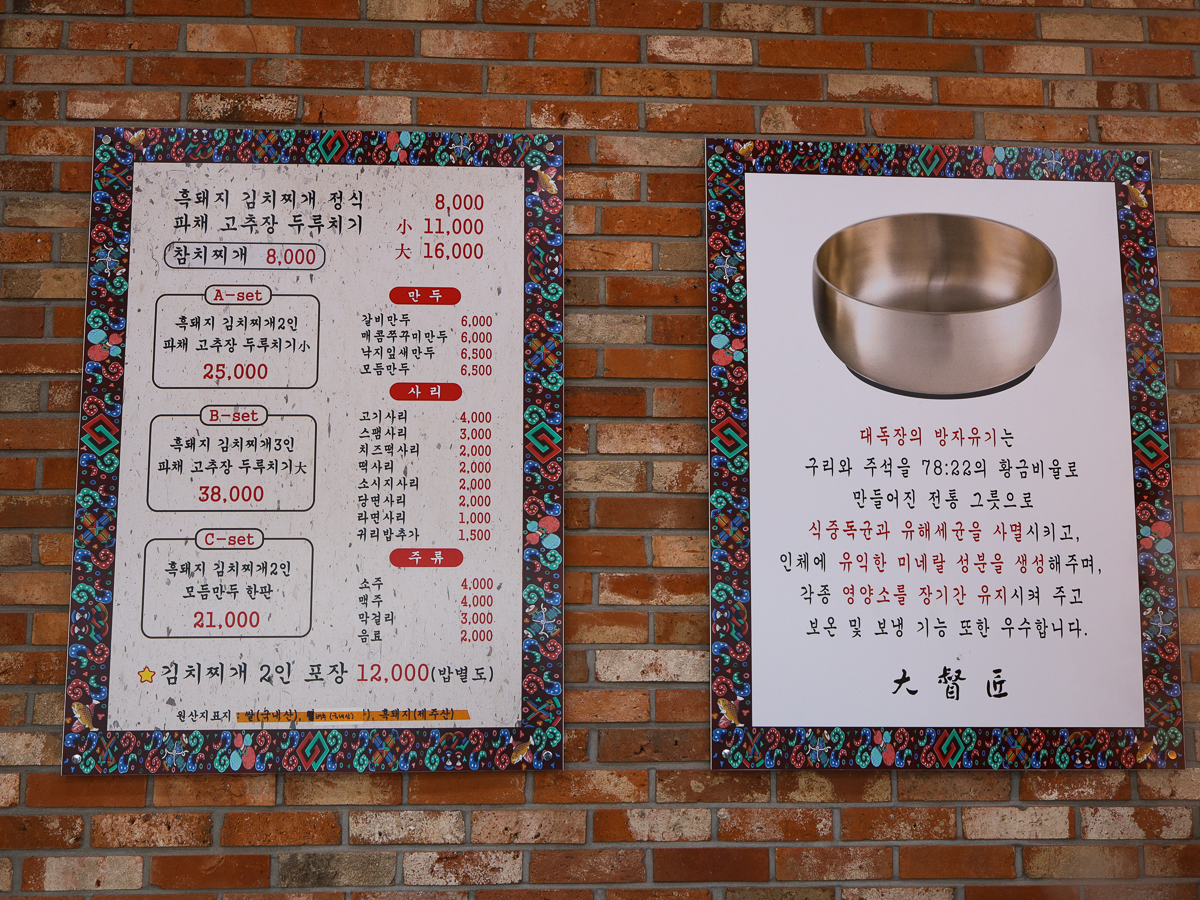 흑돼지 김치찌개 정식 8,000
파채 고추장 두루치기 小 11,000
大 16,000
참치찌개 8,000
A-set
흑돼지 김치찌개2인
파채 고추장 두루치기小
25,000
B-set
흑돼지 김치찌개3인
파채 고추장 두루치기大
38,000
C-set
흑돼지 김치찌개2인
모듬만두 한판
21,000
만두
갈비만두 6,000
매콤쭈꾸미만두 6,000
낙지잎새만두 6,500
모듬만두 6,500
사리
고기사리 4,000
스팸사리 3,000
치즈떡사리 2,000
떡사리 2,000
소시지사리 2,000
당면사리 2,000
라면사리 1,000
귀리밥추가 1,500
주류
소주 4,000
맥주 4,000
막걸리 3,000
음료 2,000
김치찌개 2인 포장 12,000(밥별도)
원산지표지 : 쌀(국내산), 흑돼지(제주산)
대독장의 방자유기는
구리와 주석을 78:22의 황금비율로
만들어진 전통 그릇으로
식중독균과 유해세균을 사멸시키고,
인체에 유익한 미네랄 성분을 생성해주며,
각종 영양소를 장기간 유지시켜 주고
보온 및 보냉 기능 또한 우수합니다.
大督匠